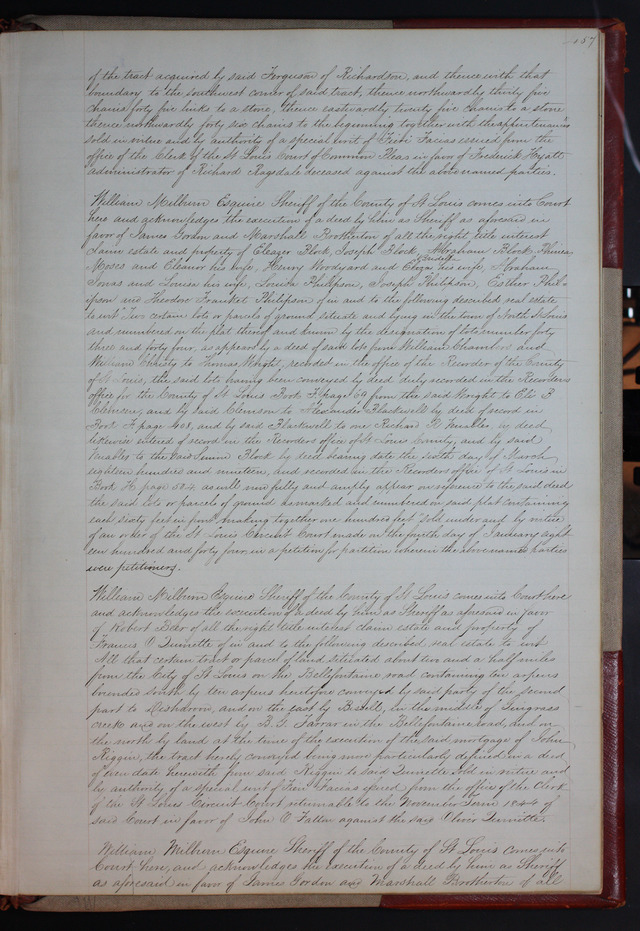 157
of the tract acquired by said Ferguson of Richardson, and thence with that
boundary to the southwest corner of said tract, thence northwardly thirty five
chains forty five links to a stone, thence eastwardly twenty five chains to a stone
thence northwardly forty six chains to the beginning together with the appurtenances
sold in virtue and by authority of a special writ of Fieri Facias issued from the
office of the Clerk of the St Louis Court of Common Pleas in favor of Frederick Hyatt
administrator of Richard Ragsdale deceased against the above named parties.
William Milburn Esquire Sheriff of the County of St Louis comes into Court
here and acknowledges the execution of a deed by him as Sheriff as aforesaid in
favor of James Gordon and Marshall Brotherton of all the right title interest
claim estate and property of Eleazer Block, Joseph Block, Abraham Block, Phineas
Moses and Eleanor his wife, Henry Woodyard and his wife, Abraham
Jonas and Louisa his wife, Louisa Philipson, Joseph Philipson, Esther Phil-
ipson and Theodore Franket Philipson of in and to the following described real estate
to wit "Two certain lots or parcels of ground situate and lying in the town of North St Louis
and numbered on the plat thereof and known by the designation of lots number forty
three and forty four, as appears by a deed of said lots from William Chambers and
William Christy to Thomas Wright, recorded in the office of the Recorder of the County
of St Louis, the said lots having been conveyed by deed duly recorded in the Recorders
office for the County of St Louis Book F page 69 from the said Wright to Eli B
Clemson, and by said Clemson to Alexander Blackwell by deed of record in
Book F page 408, and by said Blackwell to one Richard by deed
likewise entered of record in the Recorders office of St Louis County, and by said
to the said Simon Block by deed bearing date the sixth day of March
eighteen hundred and nineteen, and recorded in the Recorders office of St Louis in
Book H page 524, as will more fully and amply appear on reference to the said deed
the said lots or parcels of ground as marked and numbered on said plat containing
each sixty feet in front, making together one hundred feet" sold under and by virtue
of an order of the St Louis Circuit Court made on the fourth day of January eight
een hundred and forty four, in a petition for partition wherein the above named parties
were petitioners.
William Milburn Esquire Sheriff of the County of St Louis comes into Court here
and acknowledges the execution of a deed by him as Sheriff as aforesaid in favor
of Robert Baer of all the right title interest claim estate and property of
Francis O Dunette of in and to the following described real estate to wit
All that certain tract or parcel of land situated about two and a half miles
from the City of St Louis on the Bellefontaine road containing ten arpens
bounded south by ten arpens heretofore conveyed by said party of the second
part to and on the east by Bissell, in the middle of Gingrass
creek and on the west by B. G. Farrar in the Bellefontaine road, and on
the north by land at the time of the execution of the said mortgage of John
Riggin, the tract hereby conveyed being more particularly defined in a deed
of even date herewith from said Riggin to said Dunette sold in virtue and
by authority of a special writ of Fieri Facias issued from the office of the Clerk
of the St Louis Circuit Court returnable to the November Term 1844 of
said Court in favor of John O Fallon against the said Dunette.
William Milburn Esquire Sheriff of the County of St Louis comes into
Court here, and acknowledges the execution of a deed by him as Sheriff
as aforesaid in favor of James Gordon and Marshall Brotherton of all